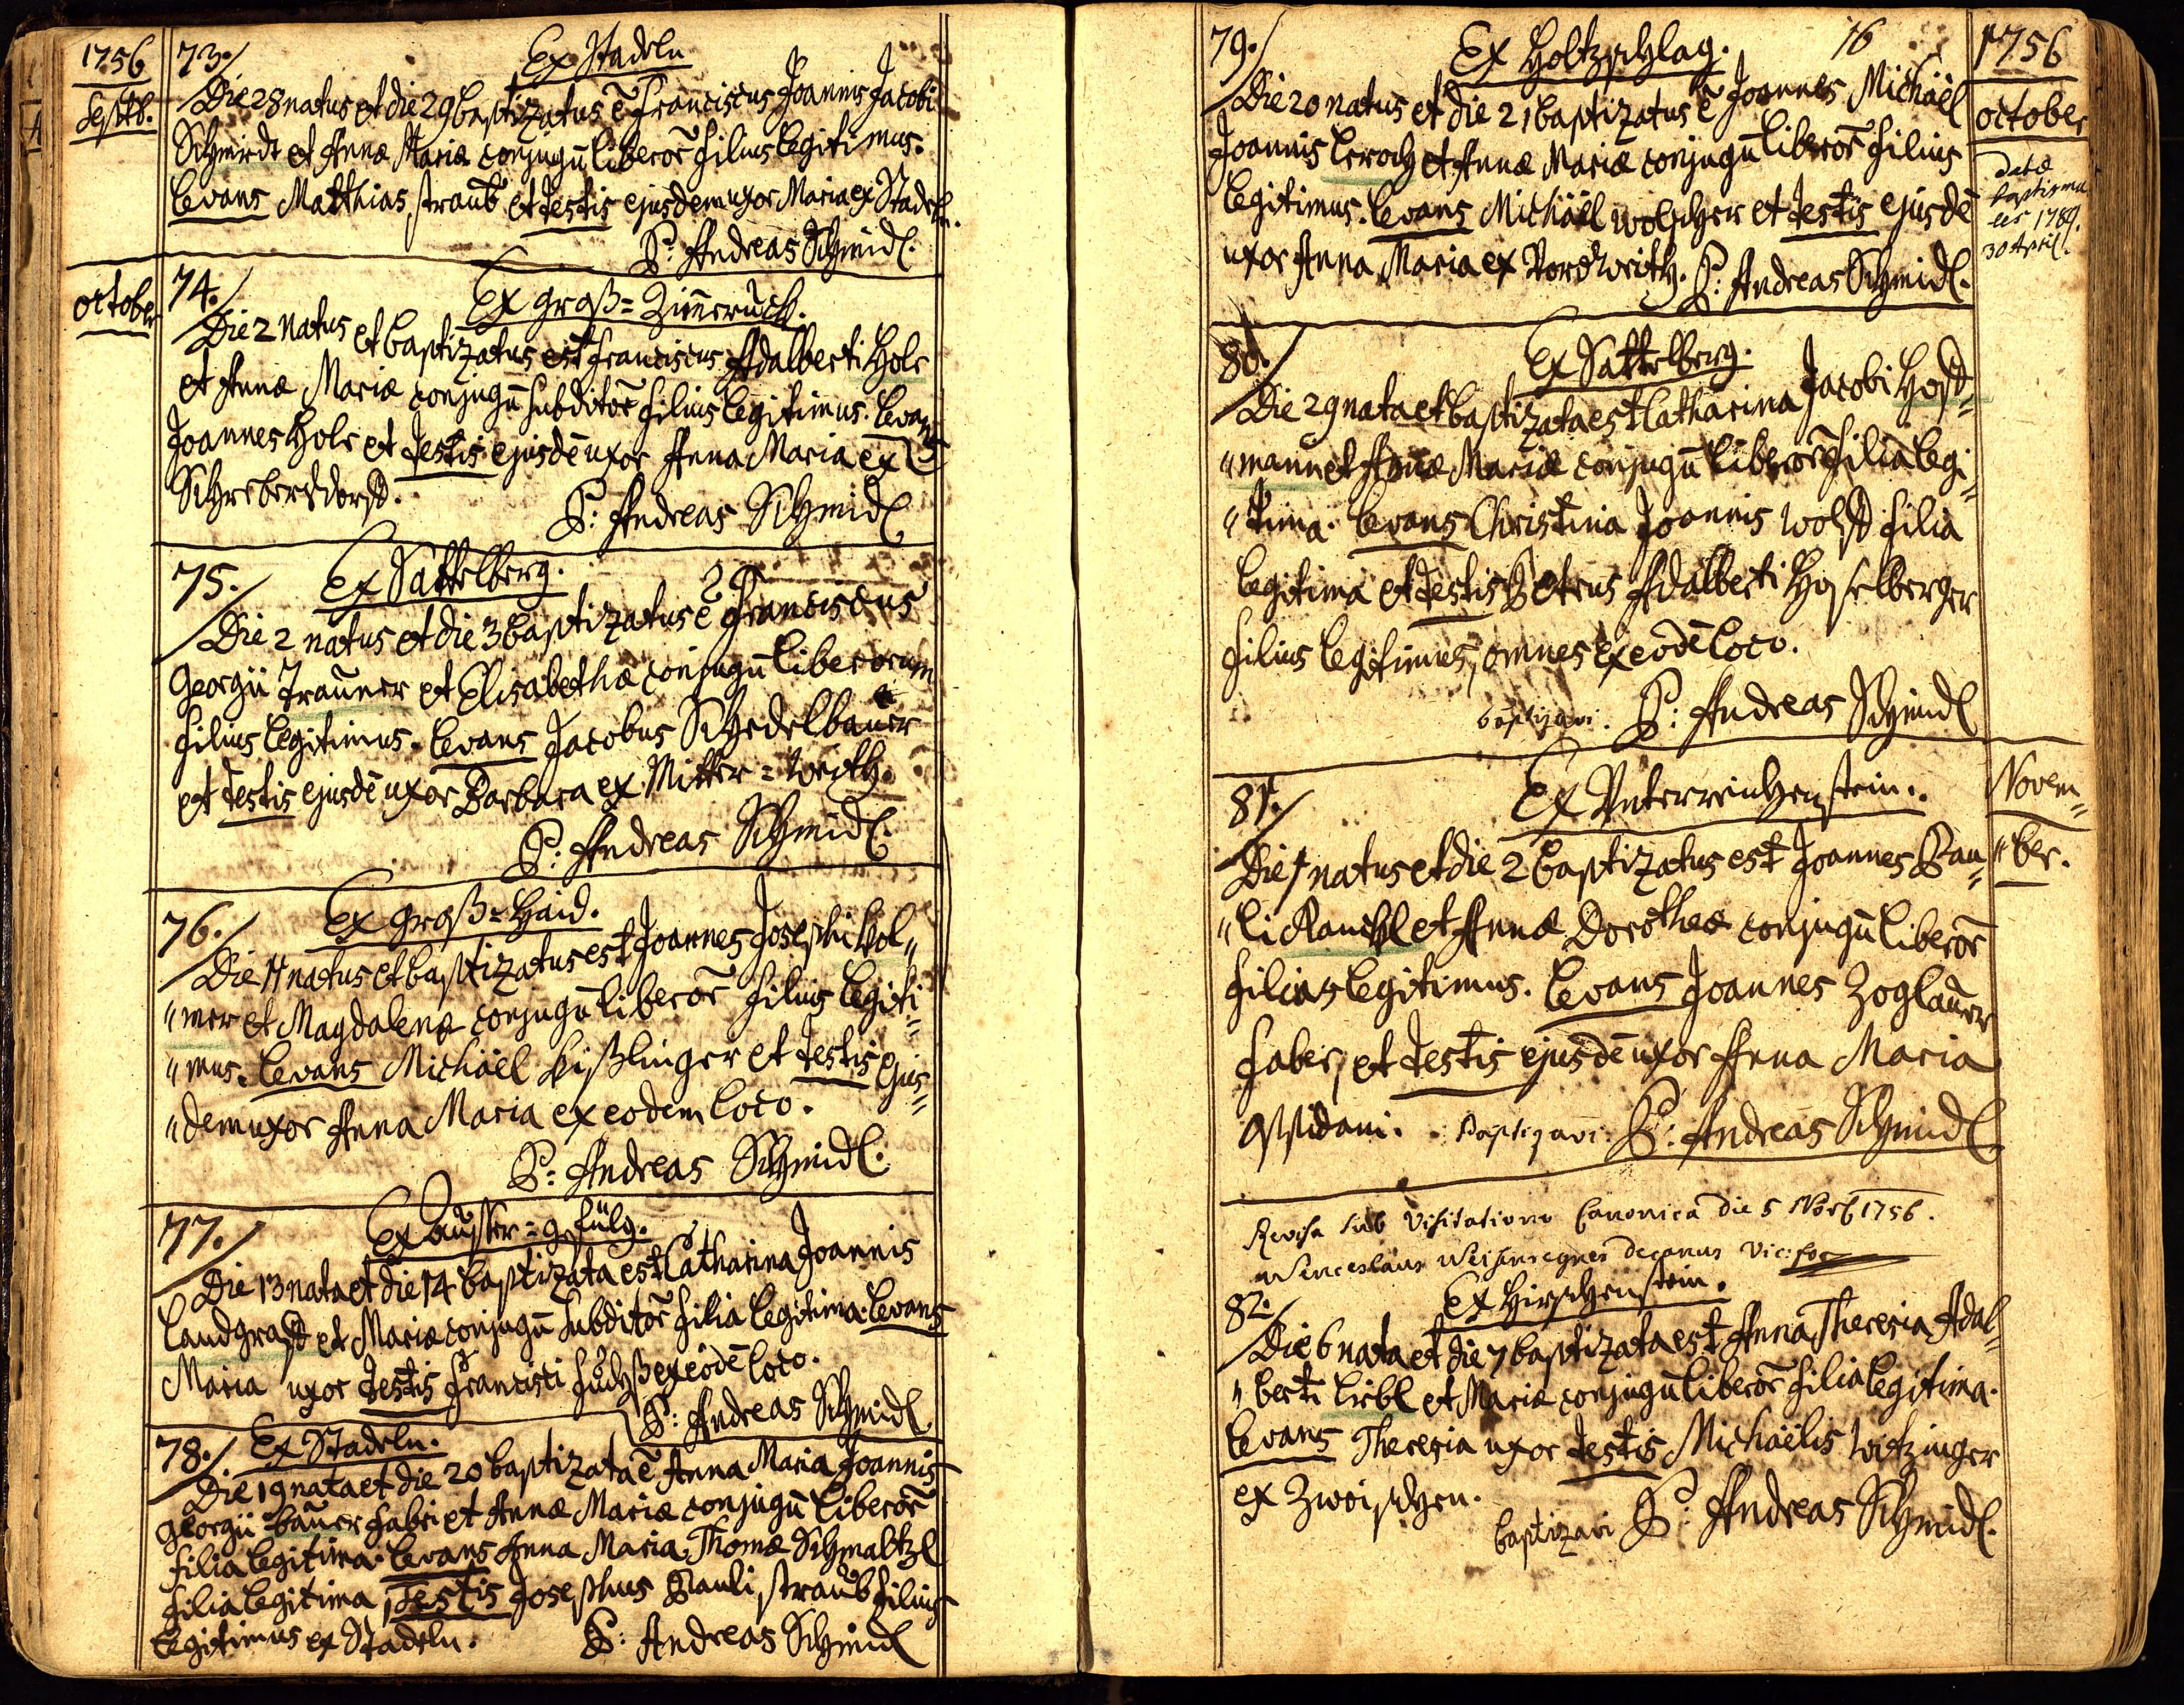 1756
Septb.
73. Ex Stadeln
Die 28 natus et die 29 baptizatus ē Franciscus Joannis Jacobi
Schmidt et Annæ Mariæ conjugū liberor̄ filius legitimus.
Levans Matthias straub et Testis ejusdem uxor Maria ex Stadeln.
P: Andreas Schmidl.
october
74. Ex groß=Zim̄eruck.
Die 2 natus et baptizatus est Franciscus Adalberti Hols
et Annæ Mariæ conjugū subditor̄ filius legitimus. Levans
Joannes Hols et Testis ejusdē uxor Anna Maria ex
P: Andreas Schmidl
75. Ex Sattelberg.
Die 2 natus et die 3 baptizatus ē Franciscus
Georgii Trauner et Elisabethæ conjugū liberorum
filius legitimus. Levans Jacobus Schedelbauer
et Testis ejusdē uxor Barbara ex Mitter=
P: Andreas Schmidl.
76. Ex groß=Haid.
Die 11 natus et baptizatus est Joannes Josephi Vol„
„mer et Magdalenæ conjugū liberor̄ filius legiti„
„mus. Levans Michaël Kißlinger et Testis ejus„
„dem uxor Anna Maria ex eodem loco.
P: Andreas Schmidl.
77. Ex ausser=gfüld.
Die 13 nata et die 14 baptizata est Catharina Joannis
Landgraff et Mariæ conjugū subditor̄ filia legitima. Levans
Maria uxor Testis Francisci ex eodē loco.
P: Andreas Schmidl
78. Ex Stadeln.
Die 19 nata et die 20 baptizata ē Anna Maria Joannis
Georgii bauer fabri et Annæ Mariæ conjugū liberor̄
filia legitima. Levans Anna Maria Thomæ Schmaltzl
filia legitima, Testis Josephus Pauli straub filius
legitimus ex Stadeln. P: Andreas Schmidl
16
1756
october
79. Ex Holtzschlag.
Die 20 natus et die 21 baptizatus ē Joannes Michaël
Joannis Lerch et Annæ Mariæ conjugū liberor̄ filius
legitimus. Levans Michaël et Testis ejusdē
uxor Anna Maria ex P: Andreas Schmidl.
datæ
baptisma
les 1789.
30 April.
80. Ex Sattelberg.
Die 29 nata et baptizata est Catharina Jacobi Hoff„
„mann et Annæ Mariæ conjugū liberor̄ filia legi„
„tima. Levans Christina Joannis Wolff filia
legitima et Testis Petrus Adalberti Haselberger
filius legitimus, omnes ex eodē loco.
baptizavi. P: Andreas Schmidl
Novem„
„ber.
81. Ex Unterreichenstein.
Die 1 natus et die 2 baptizatus est Joannes Pau„
„li Rauchl et Annæ Dorotheæ conjugū liberor̄
filius legitimus. Levans Joannes Zoglauer
faber, et Testis ejusdē uxor Anna Maria
oppidani. Baptizavi. P: Andreas Schmidl
Revisa sub Visitatione Canonica die 5 1756.
Wenceslaus decanus Vic: for
82. Ex Hirschenstein.
Die 6 nata et die 7 baptizata est Anna Theresia Adal„
„berti Liebl et Mariæ conjugū liberor̄ filia legitima.
Levans Theresia uxor Testis Michaëlis Witzinger
ex Zwoischen.
baptizavi P: Andreas Schmidl.